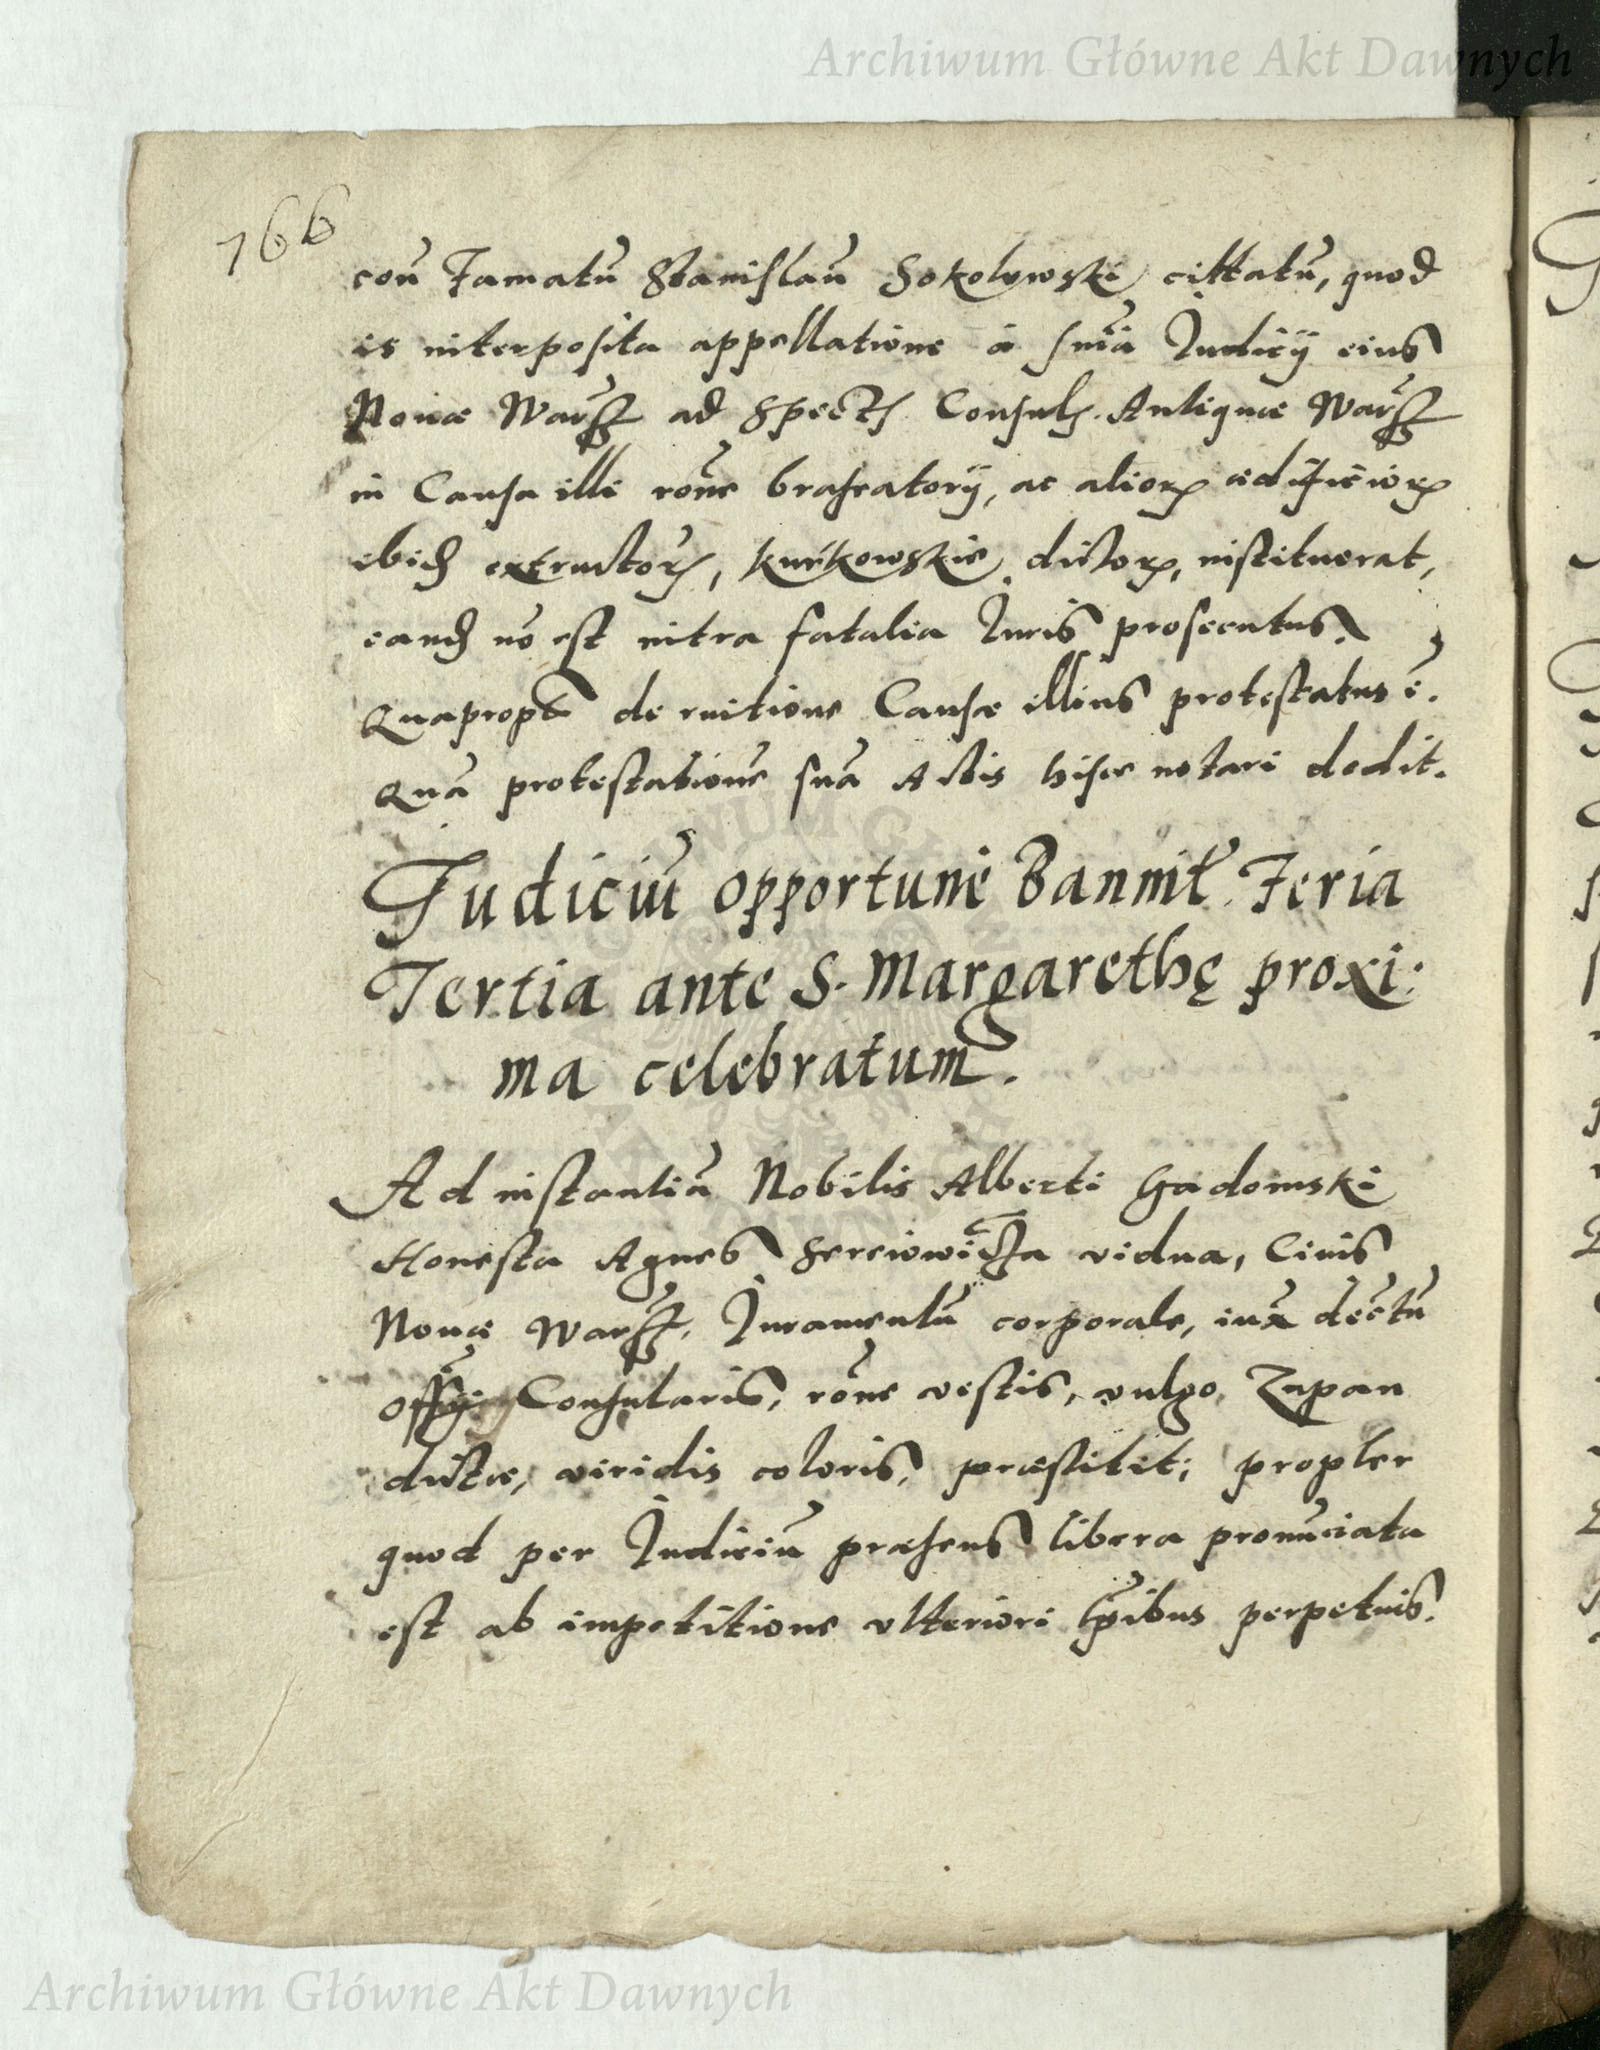 Archiwum Główne Akt Dawnych
766
coū Famatū Stanislaū Sokolowski cittatū, quod
is interposita appellatione a sn̄ia Iudicij eius
Nouæ Warss ad Spect Consul. Antiquæ Warss
in Causa illi rōne braseatorij, ac alior ædificior
ibid extructor, Kurkowskie dictor, instituerat,
eand nō est intra fatalia Iuris prosecutus.
Quapropt de ruitione Causæ illius protestatus ē.
Quā protestationē suā Actis hisce notari dedit.
Judiciū opportunē Bannit. Feria
Tertia ante S. Margarethę proxi:
ma celebratum.
Ad instantiā Nobilis Alberti Gadomski
Honesta Agnes vidua, Ciuis
Nouæ Warss, Iuramentū corporale, iux dectū
Offij Consularis, rōne vestis, vulgo Zupan
dictæ, viridis coloris, præstitit; propter
quod per Iudiciū præsens libera pronūciata
est ab impetitione vlteriori tp̄ibus perpetuis.
Archiwum Główne Akt Dawnych